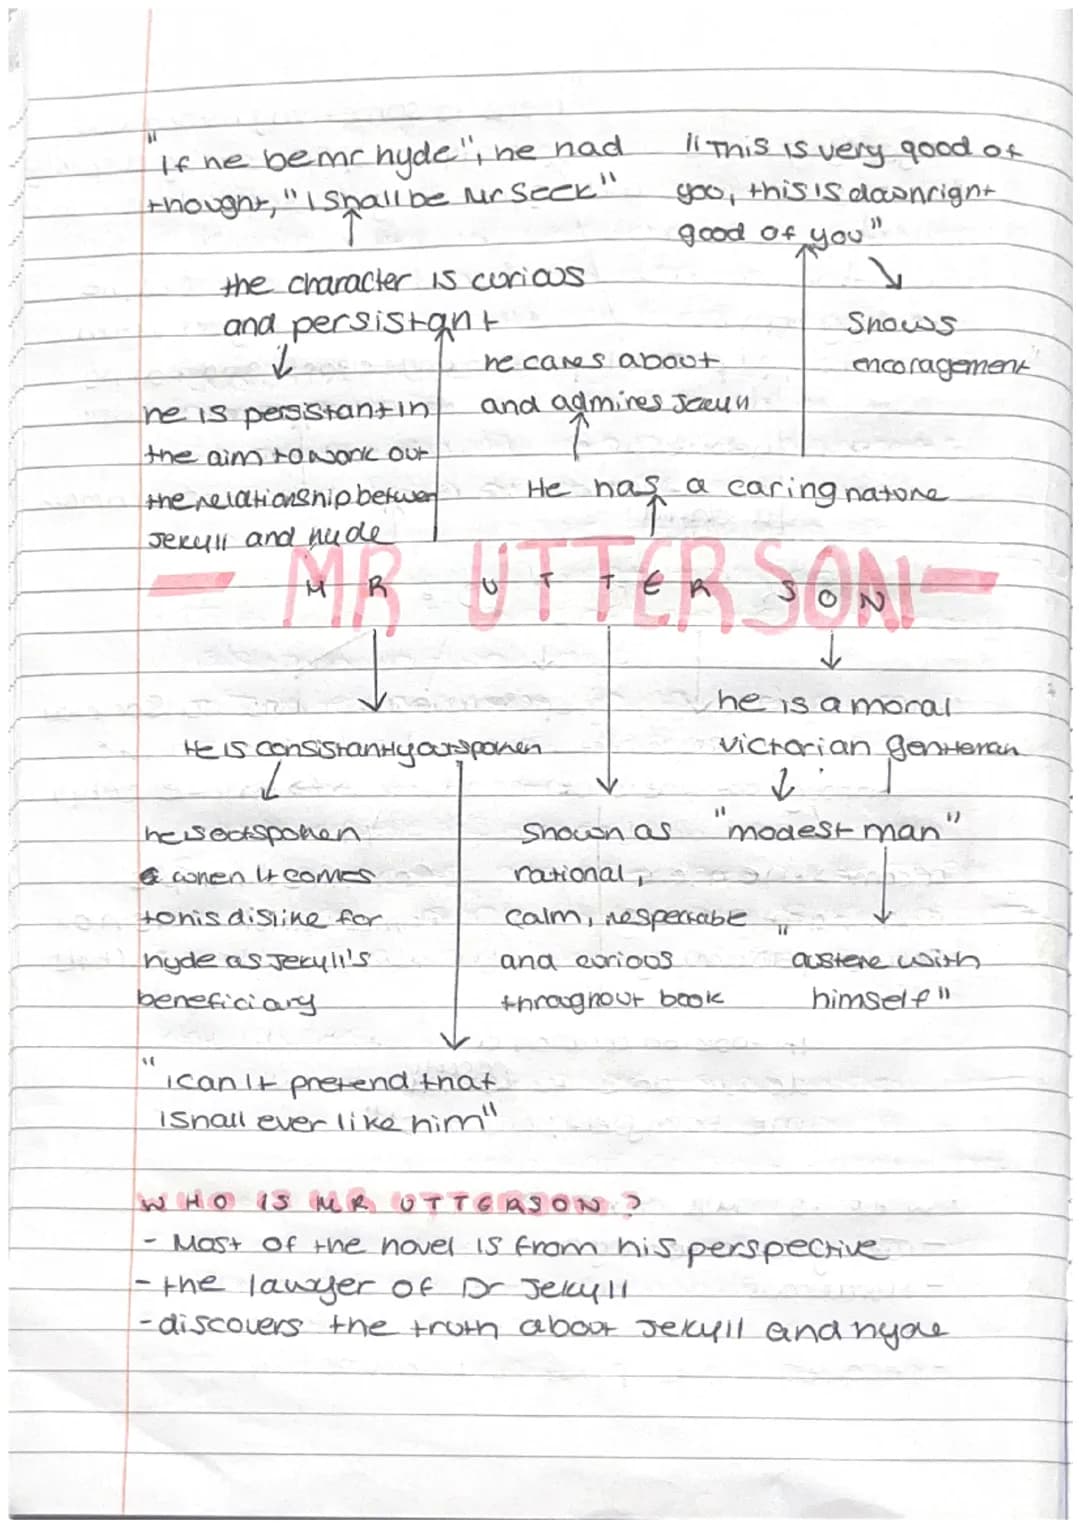 "If he be mr hyde", he had
thought, "I Shall be Mr Seek"
"This is very good of
you, this is downright
good of you"
the character is curious
and persistant
Shows
encoragement
he cares about
and admires Jekyll
he is persistant in
the aim to work out
the relationship between
Jekyll and hyde
He has a caring nature
- MR UTTERSON -
he is a moral
victorian gentleman
He is consistantly outspoken
he is outspoken
when it comes
to his dislike for
hyde as Jekyll's
beneficiary
Shown as
rational,
calm, respectable
and curious
throughout book
"modest man"
"austere with
himself"
"i can't pretend that
i shall ever like him"
WHO IS MR UTTERSON?
- Most of the novel is from his perspective
- the lawyer of Dr Jekyll
- discovers the truth about Jekyll and hyde